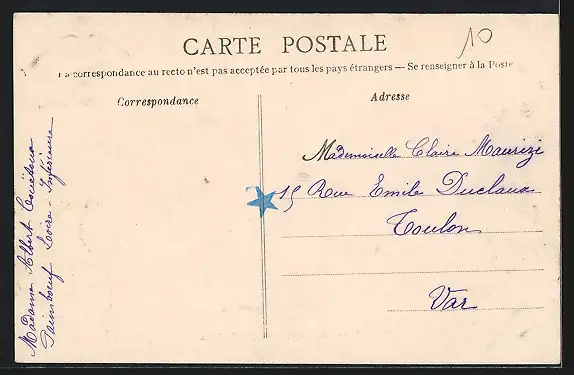 10
CARTE POSTALE
La correspondance au recto n'est pas acceptée par tous les pays étrangers — Se renseigner à la Poste
Correspondance
Adresse
Mademoiselle Claire Maurizi
15 Rue Emile Duclaux
Toulon
Var
Madame Albert
Paimboeuf Loire-Inférieure